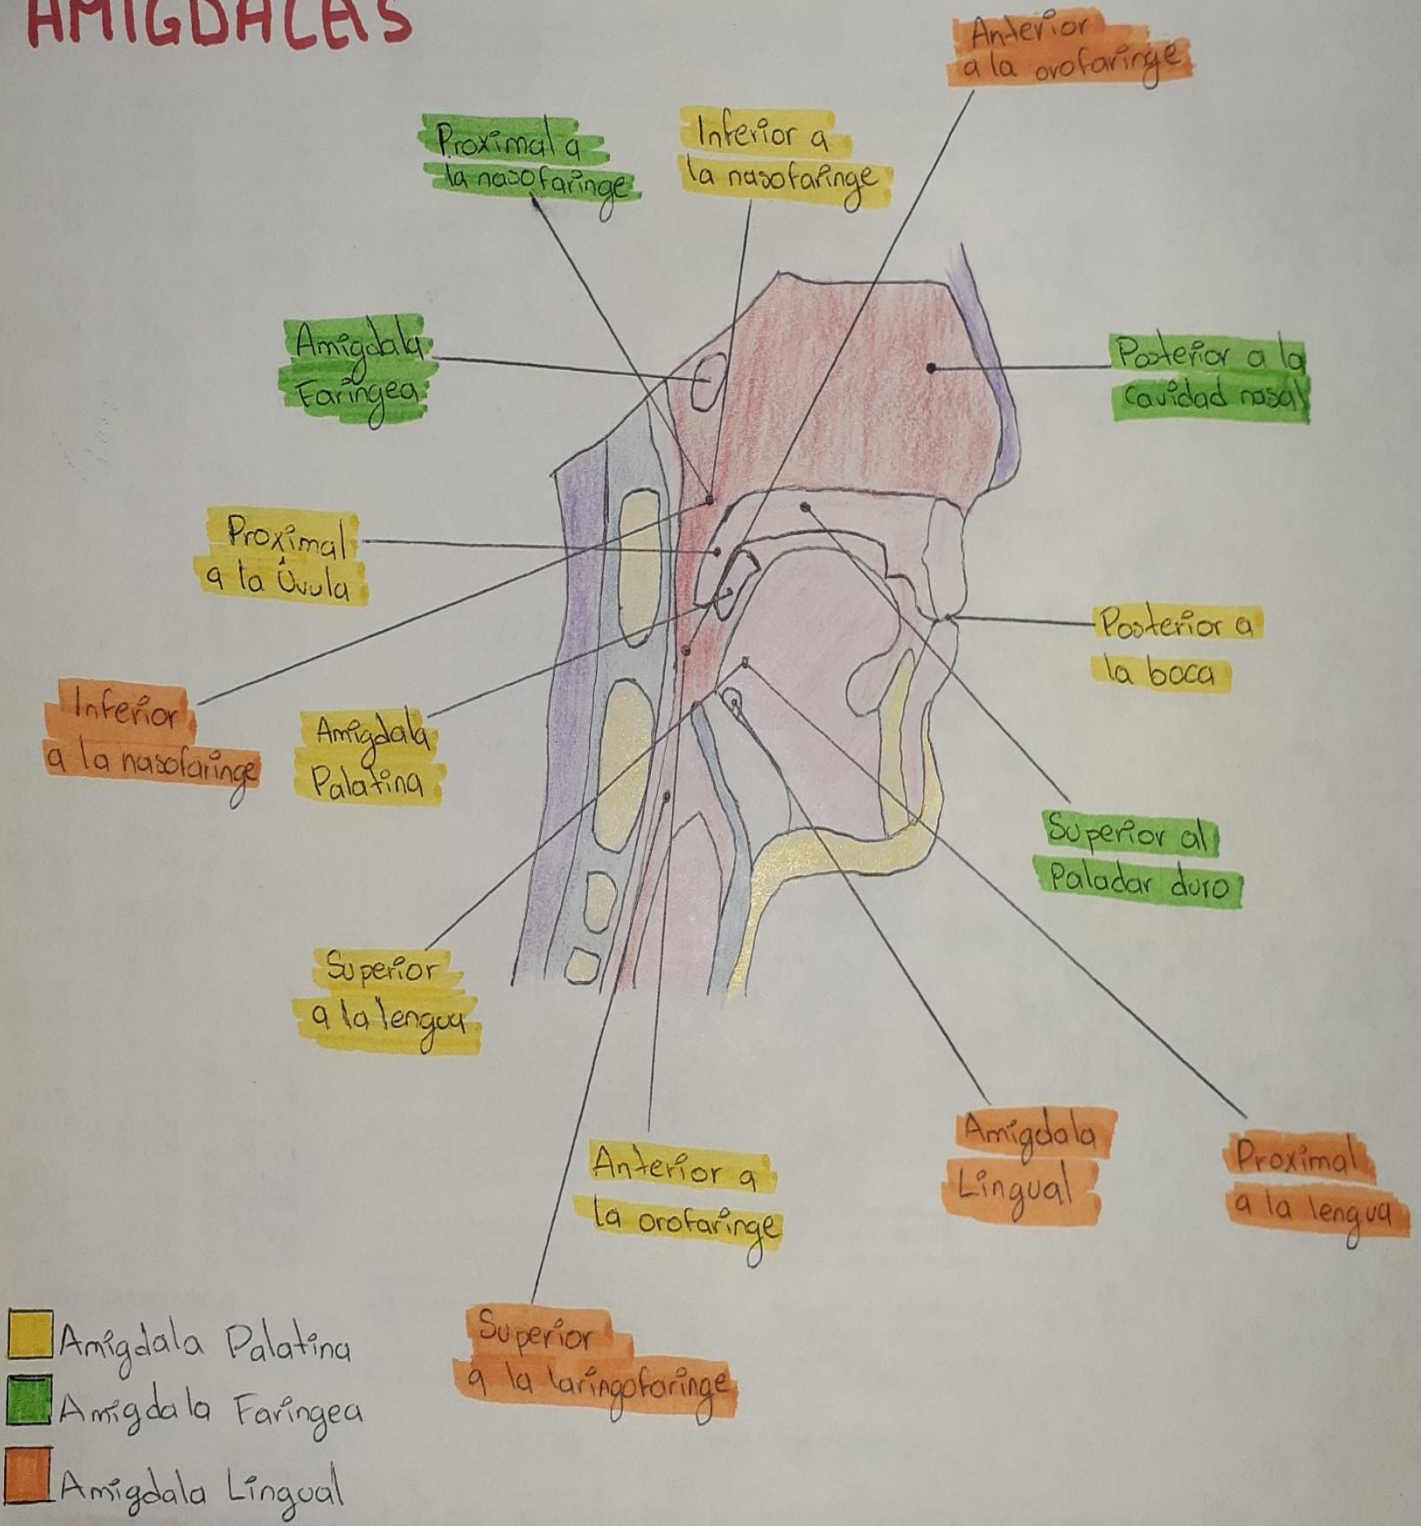 AMIGDALAS
Anterior
a la orofaringe
Proximal a
la nasofaringe
Inferior a
la nasofaringe
Amigdala
Faringea
Posterior a la
cavidad nasal
Proximal
a la Úvula
Posterior a
la boca
Inferior
a la nasofaringe
Amigdala
Palatina
Superior al
Paladar duro
Superior
a la lengua
Anterior a
la orofaringe
Amigdala
Lingual
Proximal
a la lengua
Superior
a la laringofaringe
Amigdala Palatina
Amigdala Faringea
Amigdala Lingual